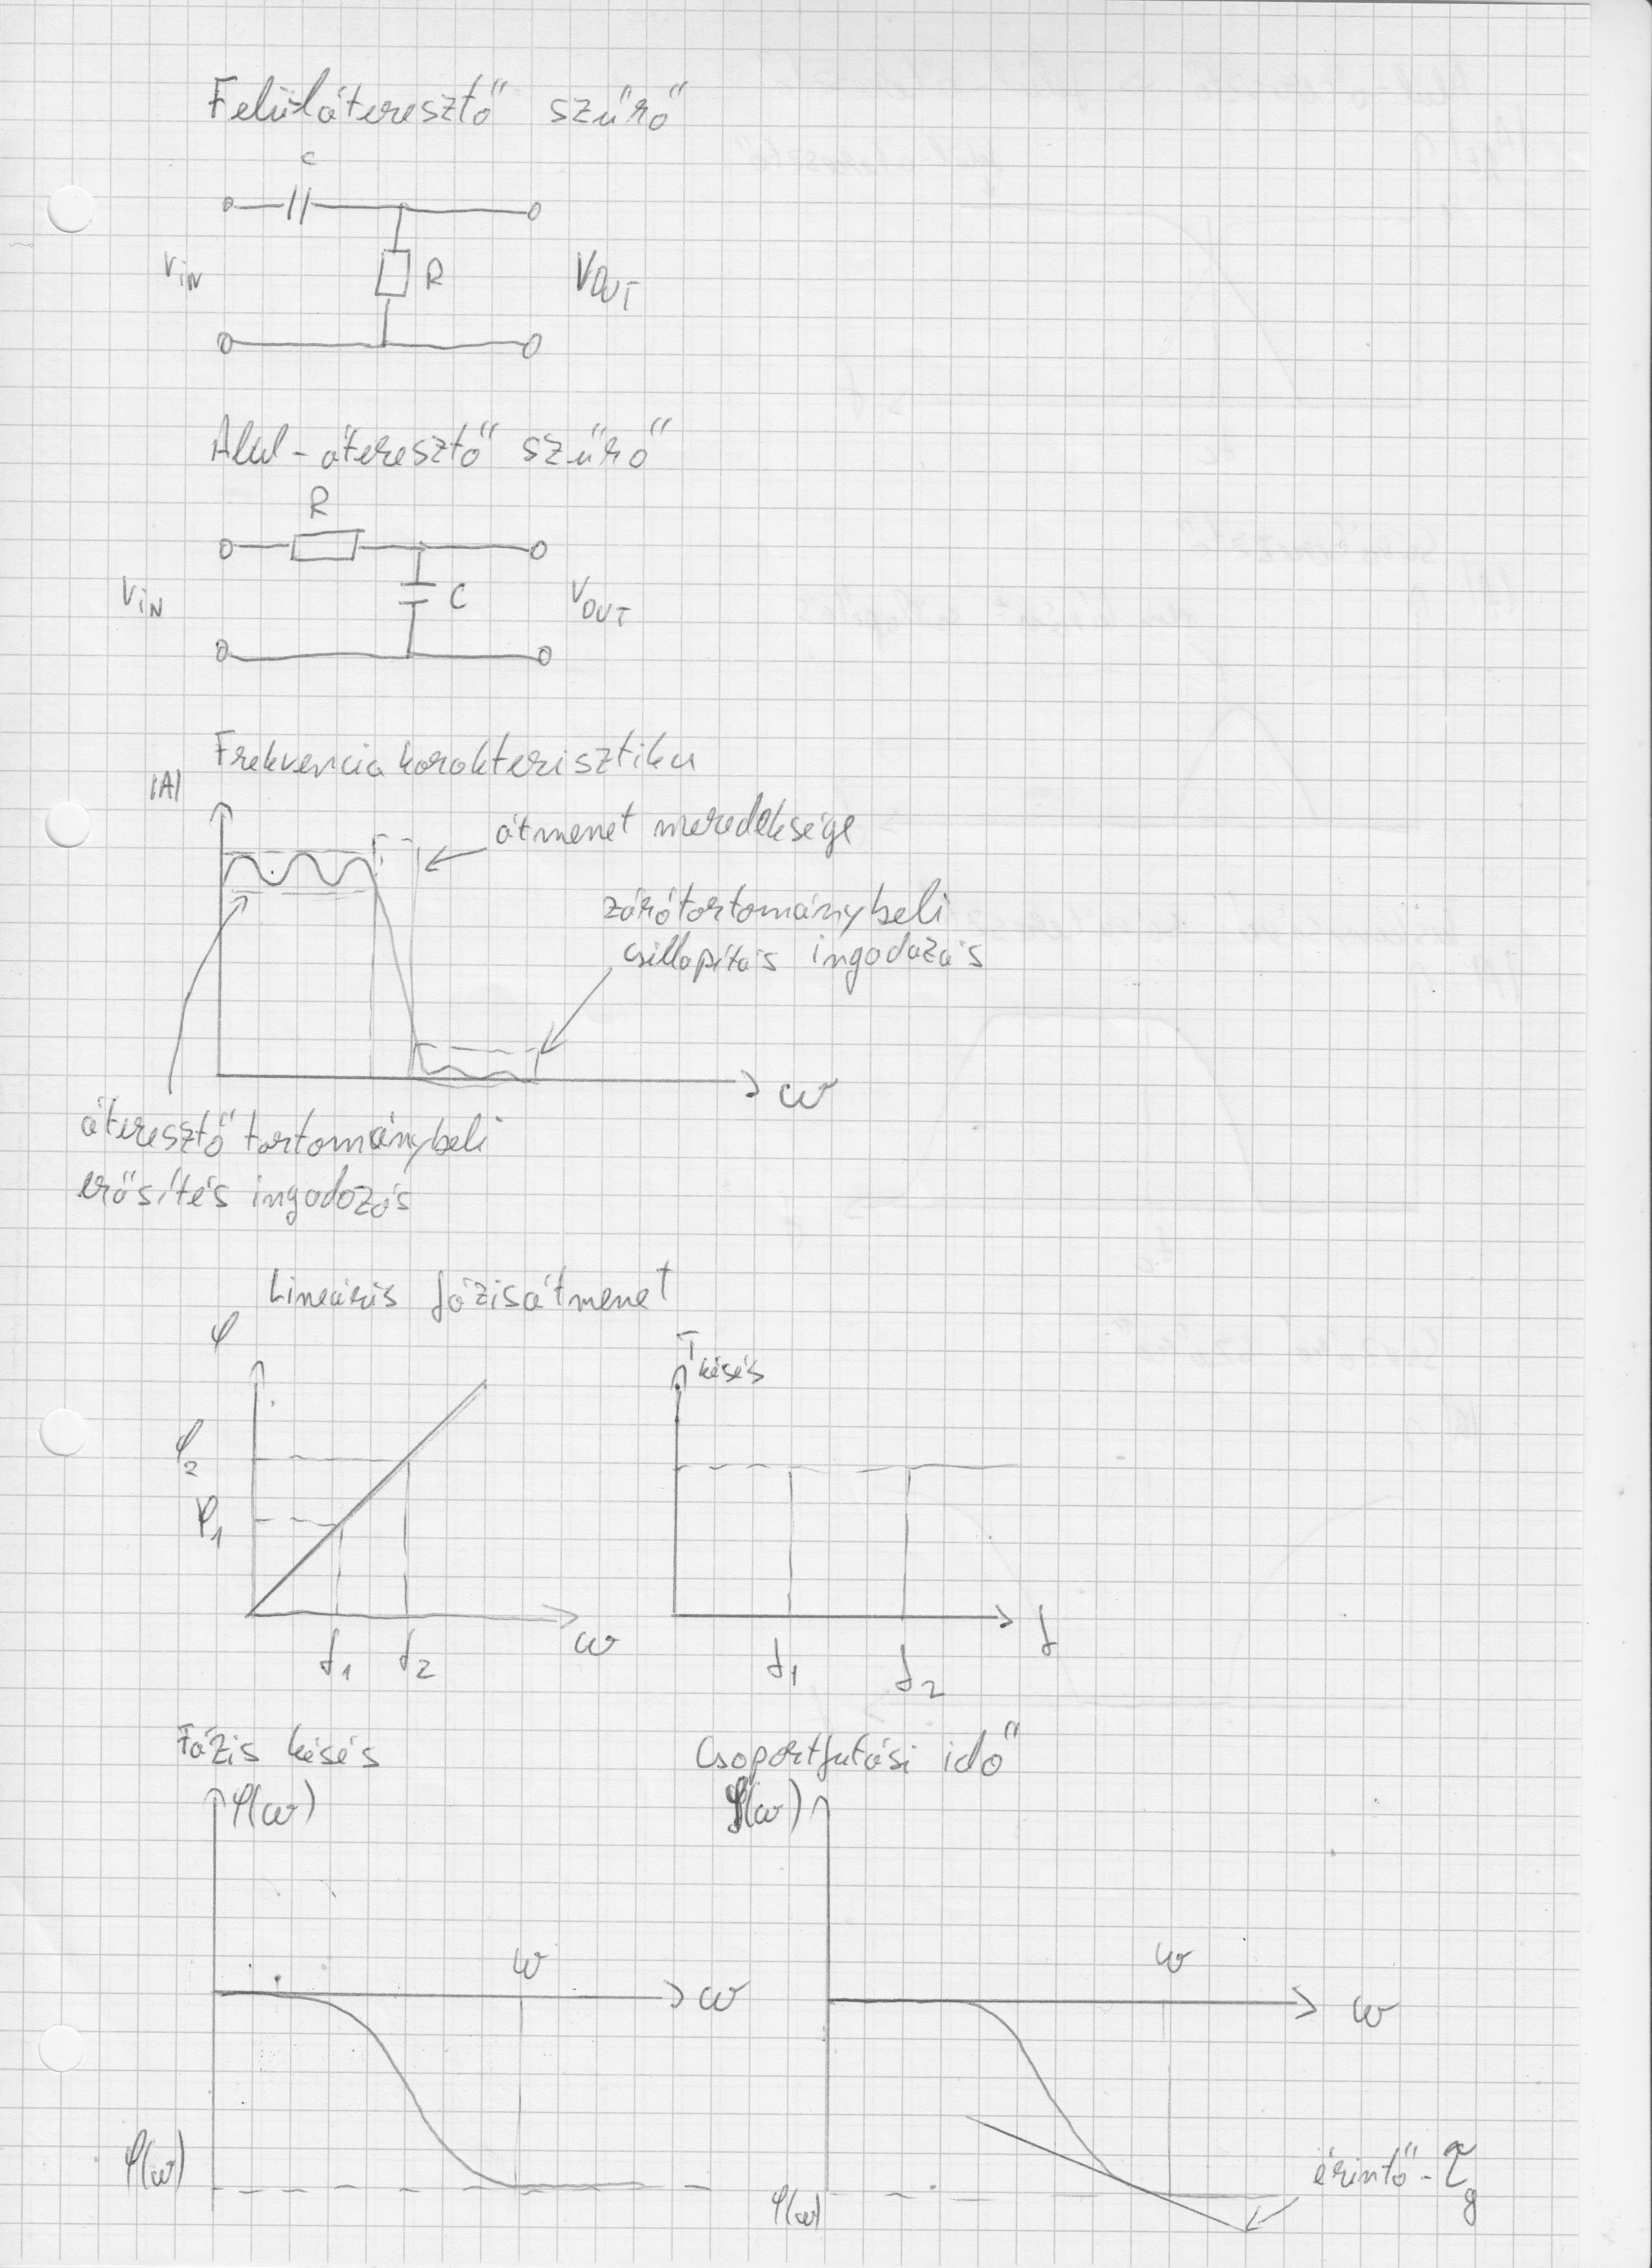 Felüláteresztő szűrő
C
VIN
R
VOUT
Alul-áteresztő szűrő
R
VIN
C
VOUT
Frekvencia karakterisztika
|A|
átmenet meredeksége
zárótartománybeli
csillapítás ingadozás
ω
áteresztő tartománybeli
erősítés ingadozás
Lineáris fázisátmenet
φ
T késés
φ2
φ1
ω
f
f1 f2
f1 f2
Fázis késés
Csoportfutási idő
φ(ω)
φ(ω)
ω
ω
ω
ω
φ(ω)
φ(ω)
érintő - τg